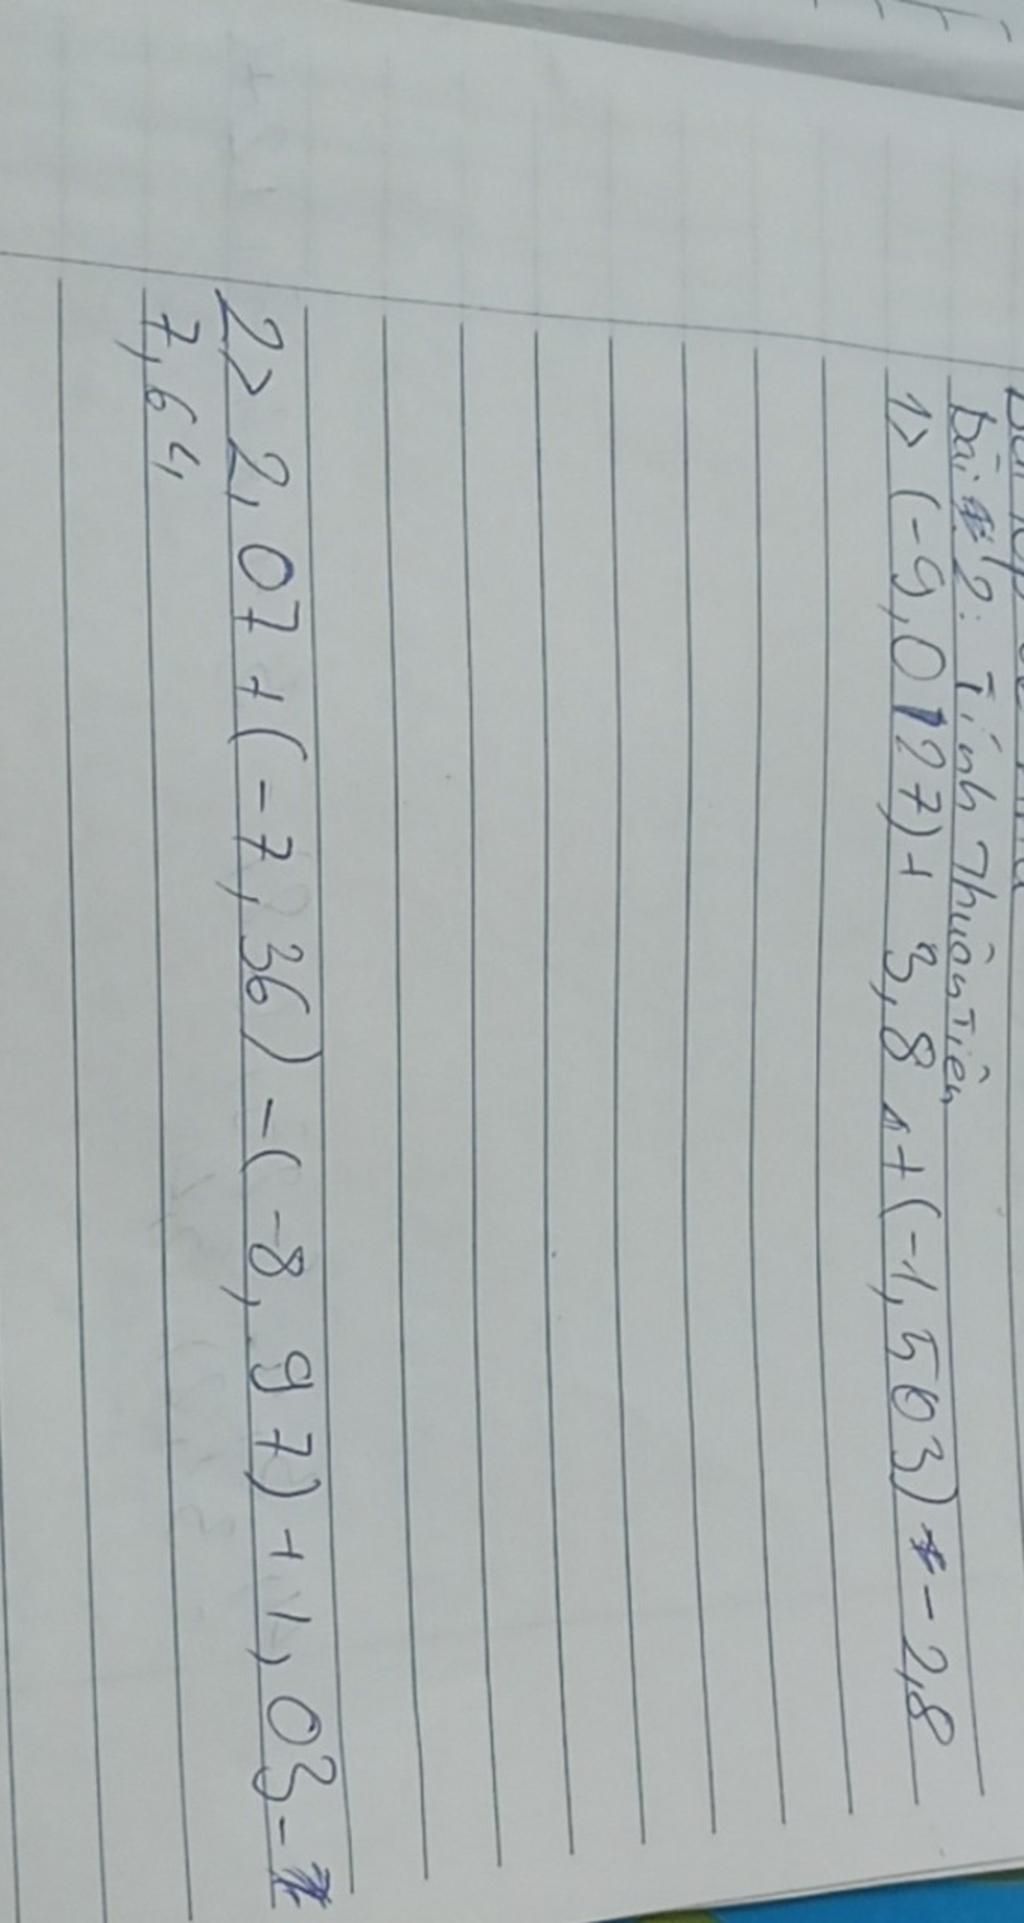 bài 2: Tính Thuận Tiện
1> (-9,0127) + 3,8 + (-1,503) - 2,8
2> 2,07 + (-7,36) - (-8,97) + 1,03 -
7,64